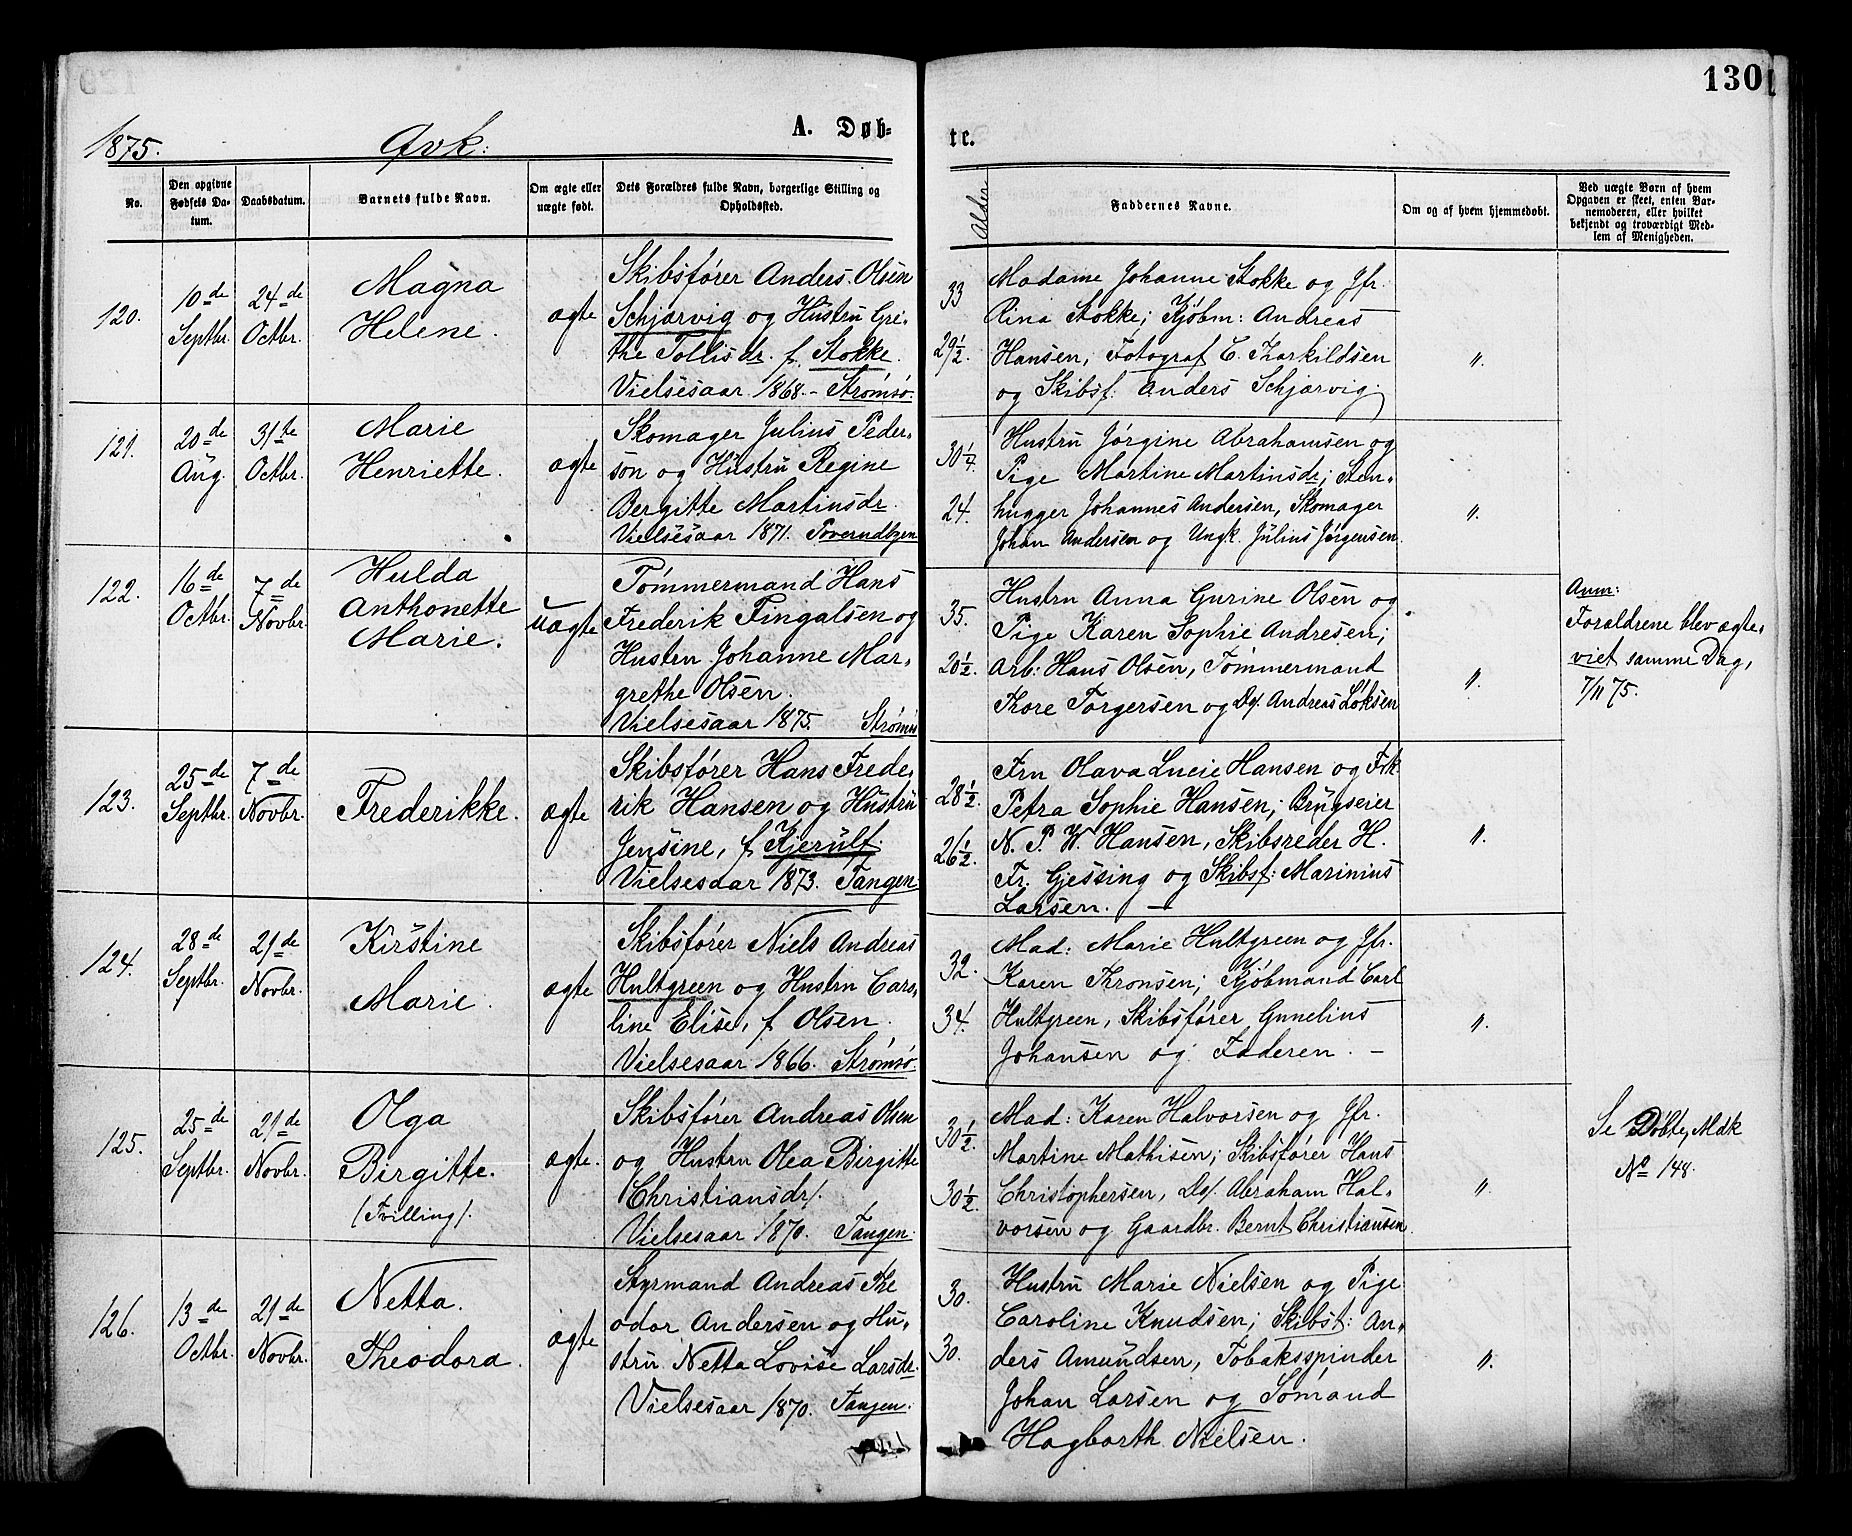 130
1875. Qvk: A. Døb-
te.
No.
Den opgivne Fødsels Da-
tum.
Daabsdatum.
Barnets fulde Navn.
Om ægte eller
uægte født.
Dets Forældres fulde Navn, borgerlige Stilling og
Opholdssted.
Alder
Faddernes Navne.
Om og af hvem hjemmedøbt.
Ved uægte Børn af hvem
Opgaven er skeet, enten Bar-
nemoderen, eller hvilket
bekjendt og troværdigt Med-
lem af Menigheden.
120.
10de
Septbr.
24de
Octbr.
Magna
Helene.
ægte
Skibsfører Anders Olsen
Schjærvig og Hustru Gre-
the Tollisdr. f. Stokke.
Vielsesaar 1868. - Strømsø.
33
29 1/2.
Madame Johanne Stokke og Jfr.
Rina Stokke; Kjøbm: Andreas
Hansen, Fotograf C. Tharkildsen
og Skibsf. Anders Schjærvig.
".
121.
20de
Aug.
31te
Octbr.
Marie
Henriette.
ægte
Skomager Julius Peder-
sen og Hustru Regine
Bergitte Martinsdr.
Vielsesaar 1871.
30 1/4.
24.
Hustru Jørgine Abrahamsen og
Pige Martine Martinsdr; Sten-
hugger Johannes Andersen, Skomager
Johan Andersen og Ungk. Julius Jørgensen.
".
122.
16de
Octbr.
7de
Novbr.
Hulda
Anthonette
Marie.
uægte
Tømmermand Hans
Frederik Fingalsen og
Hustru Johanne Mar-
grethe Olsen.
Vielsesaar 1875. Strømsø
35.
20 1/2.
Hustru Anna Gurine Olsen og
Pige Karen Sophie Andresen;
Arb: Hans Olsen, Tømmermand
Thore Torgersen og Do. Andreas Løksen
".
Anm:
Forældrene blev ægte-
viet samme Dag,
7/11 75.
123.
25de
Septbr.
7de
Novbr.
Frederikke.
ægte
Skibsfører Hans Frede-
rik Hansen og Hustru
Jensine, f. Kjerulf.
Vielsesaar 1873. Tangen.
28 1/2.
26 1/2.
Fru Olava Lucie Hansen og Frk
Petra Sophie Hansen; Brugseier
N. P. W. Hansen, Skibsreder H.
Fr. Gjessing og Skibsf: Marinius
Larsen. -
".
124.
28de
Septbr.
21de
Novbr.
Kirstine
Marie.
ægte
Skibsfører Niels Andreas
Hultgreen og Hustru Caro-
line Elise, f. Olsen.
Vielsesaar 1866. Strømsø.
32.
34.
Mad: Marie Hultgreen og Jfr.
Karen Thronsen; Kjøbmand Carl
Hultgreen, Skibsfører Gunelius
Johansen og Faderen. -
".
125.
25de
Septbr.
21de
Novbr.
Olga
Birgitte.
(Tvilling).
ægte.
Skibsfører Andreas Olsen
og Hustru Olea Birgitte
Christiansdr.
Vielsesaar 1870. Tangen.
30 1/2.
30 1/2.
Mad: Karen Halvorsen og Jfr.
Martine Mathisen; Skibsfører Hans
Christophersen, Do. Abraham Hal-
vorsen og Gaardbr. Bernt Christiansen
".
Se Døbte, Mdk
No 148.
126.
13de
Octbr.
21de
Novbr.
Netta
Theodora.
ægte
Styrmand Andreas The
odor Andersen og Hu-
stru Netta Lovise Larsdr.
Vielsesaar 1870. Tangen.
30.
30.
Hustru Marie Nielsen og Pige
Caroline Knudsen; Skibst: An-
ders Amundsen, Tobaksspinder
Johan Larsen og Sømand
Hagbarth Nielsen.
".